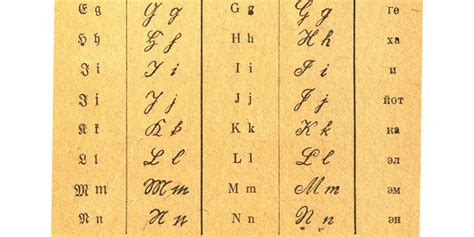 𝔊 𝔤 G g G g G g ге
ℌ 𝔥 H h H h H h ха
ℑ 𝔦 I i I i I i и
𝔍 𝔧 J j J j J j йот
𝔎 𝔨 K k K k K k ка
𝔏 𝔩 L l L l L l эл
𝔐 𝔪 M m M m M m эм
𝔑 𝔫 N n N n N n эн